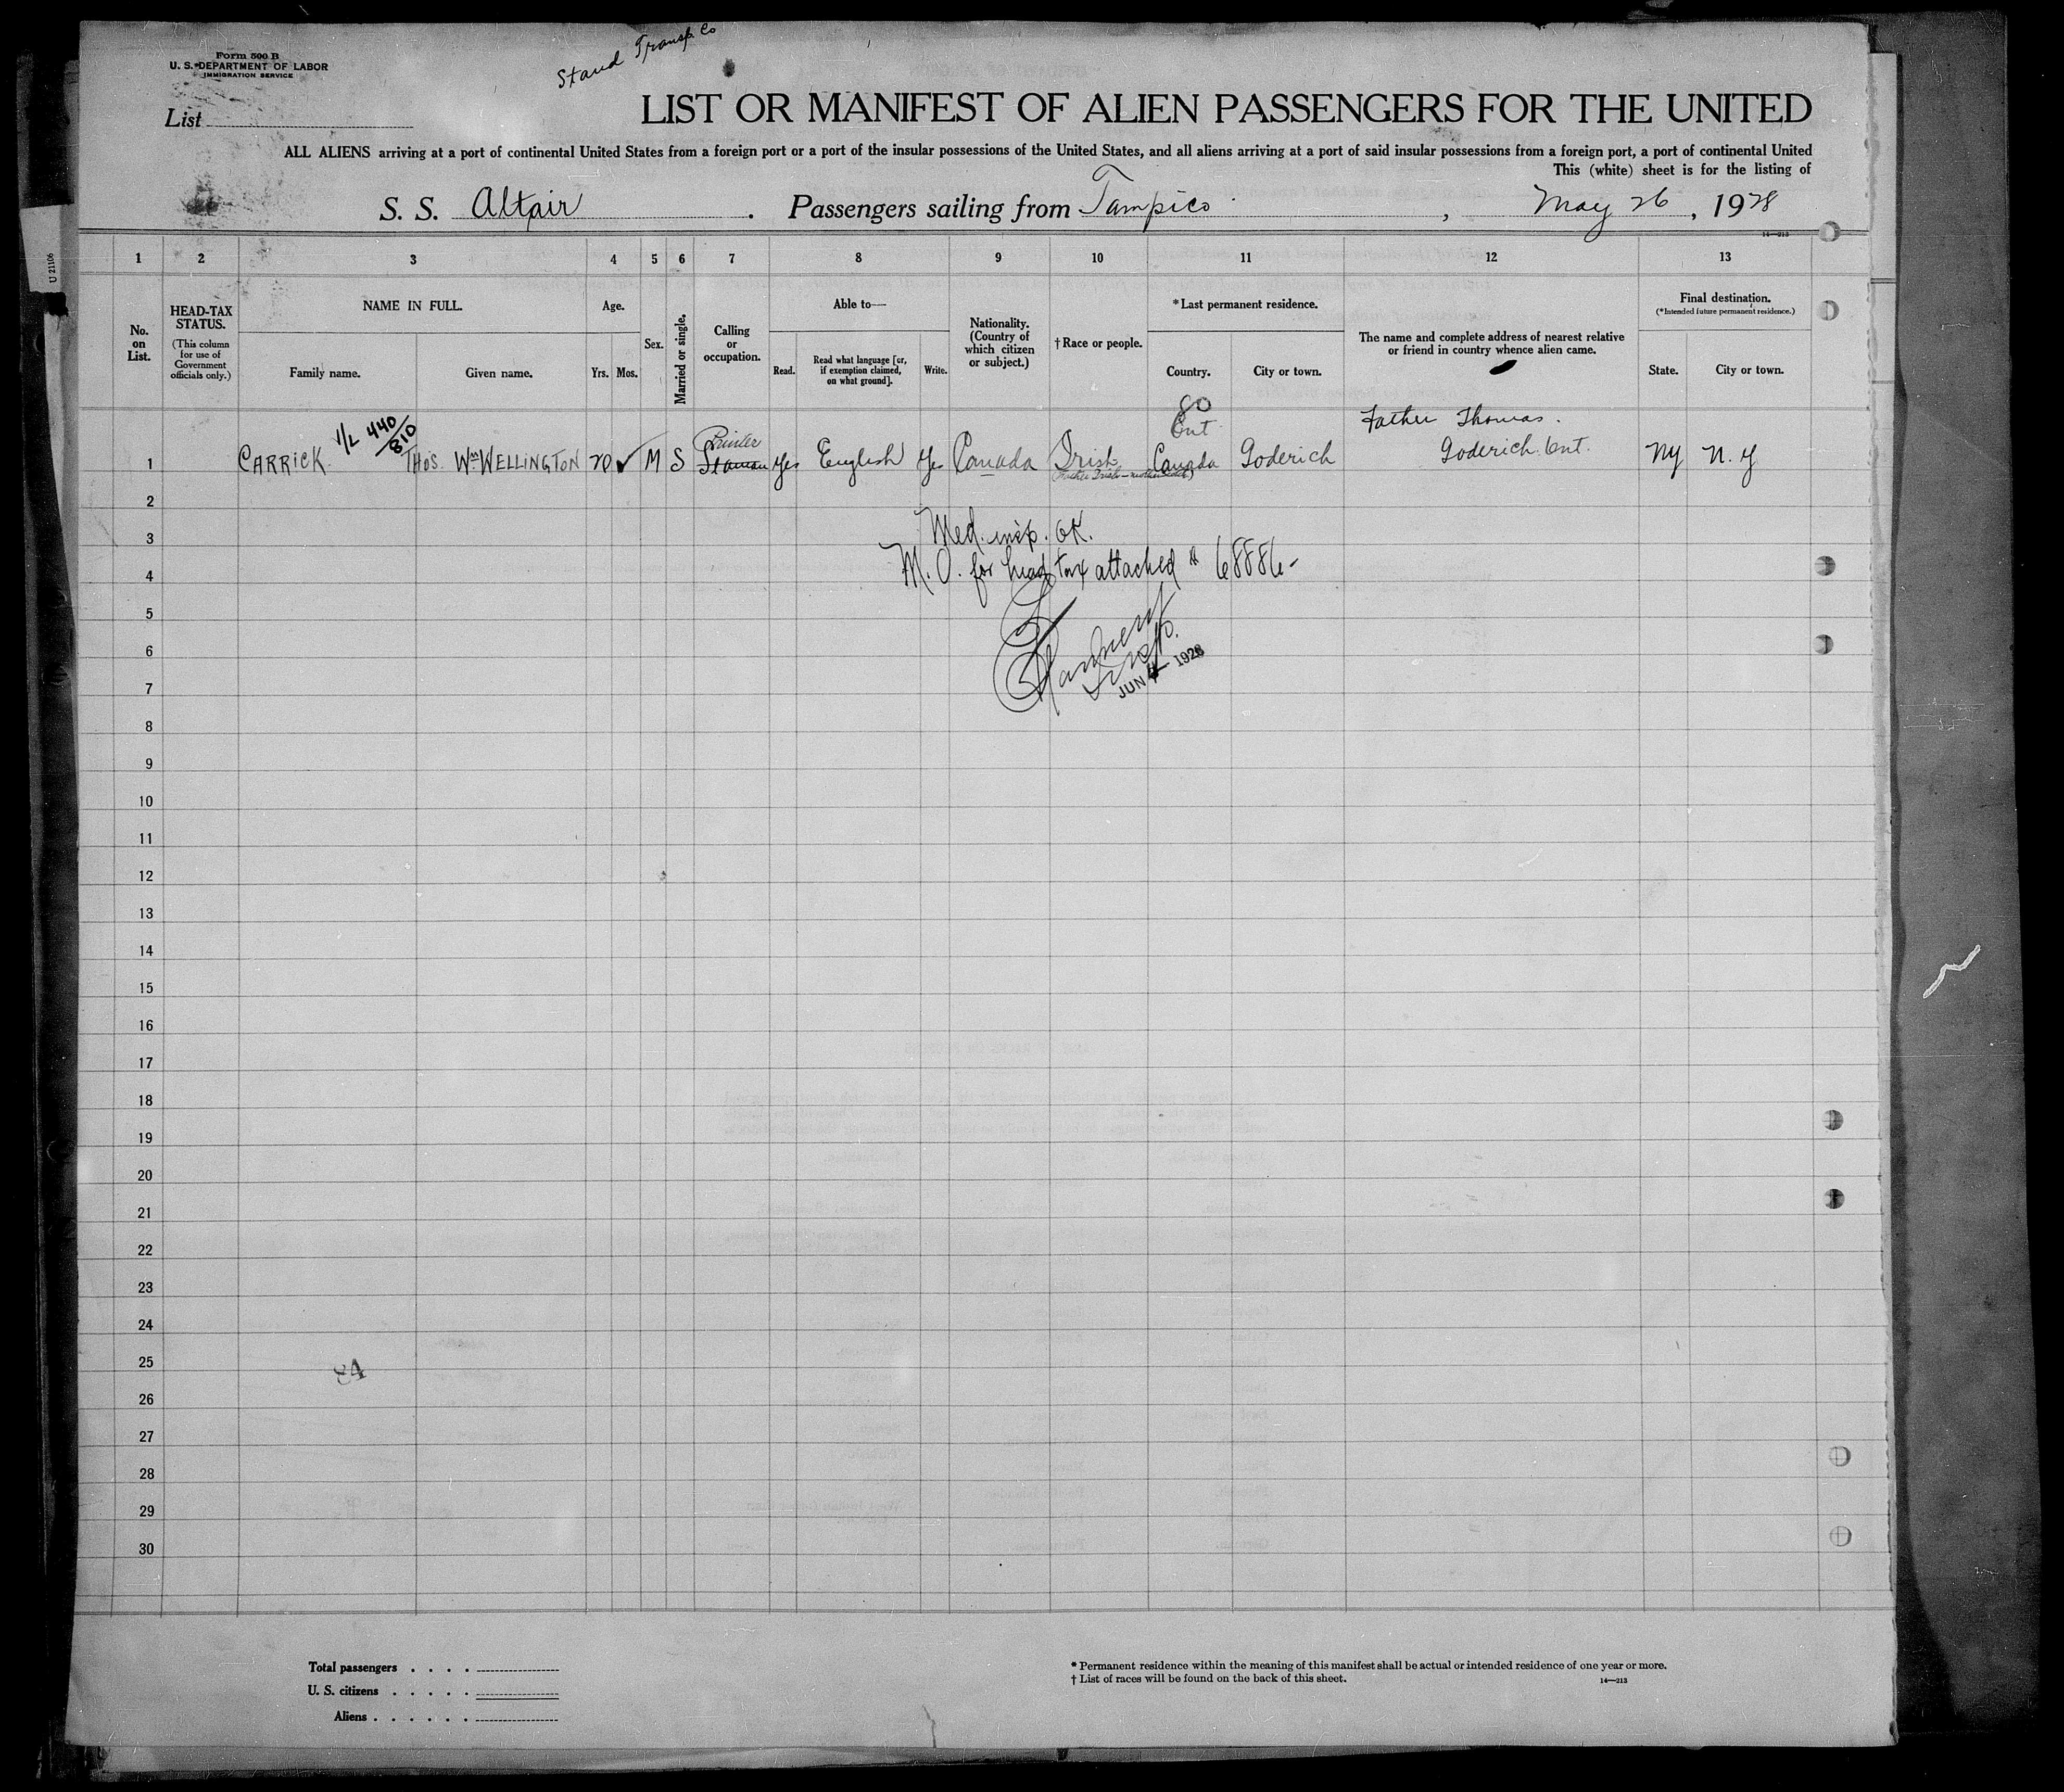 Form 500 B
U. S. DEPARTMENT OF LABOR
IMMIGRATION SERVICE
Stand Transp. Co
List
LIST OR MANIFEST OF ALIEN PASSENGERS FOR THE UNITED
ALL ALIENS arriving at a port of continental United States from a foreign port or a port of the insular possessions of the United States, and all aliens arriving at a port of said insular possessions from a foreign port, a port of continental United
This (white) sheet is for the listing of
S. S. Altair . Passengers sailing from Tampico , May 26, 1928
14—213
U 21106
1 2 3 4 5 6 7 8 9 10 11 12 13
No. on List.
HEAD-TAX STATUS.
(This column for use of Government officials only.)
NAME IN FULL.
Family name. Given name.
Age.
Yrs. Mos.
Sex.
Married or single.
Calling or occupation.
Able to—
Read. Read what language [or, if exemption claimed, on what ground]. Write.
Nationality. (Country of which citizen or subject.)
†Race or people.
*Last permanent residence.
Country. City or town.
The name and complete address of nearest relative or friend in country whence alien came.
Final destination.
(*Intended future permanent residence.)
State. City or town.
1/2 440/810
80
Ont
Father Thomas.
Printer
1 CARRICK THOS. Wm WELLINGTON 20 ✓ M S Yes English Yes Canada Irish Canada Goderich Goderich Ont. NY N. Y
2
3 Med. insp. OK.
4 M. O. for head tax attached # 68886-
5
6
JUN 4 1928
7
8
9
10
11
12
13
14
15
16
17
18
19
20
21
22
23
24
25
84
26
27
28
29
30
Total passengers . . . .
U. S. citizens . . . . .
Aliens . . . . . .
* Permanent residence within the meaning of this manifest shall be actual or intended residence of one year or more.
† List of races will be found on the back of this sheet.
14—213